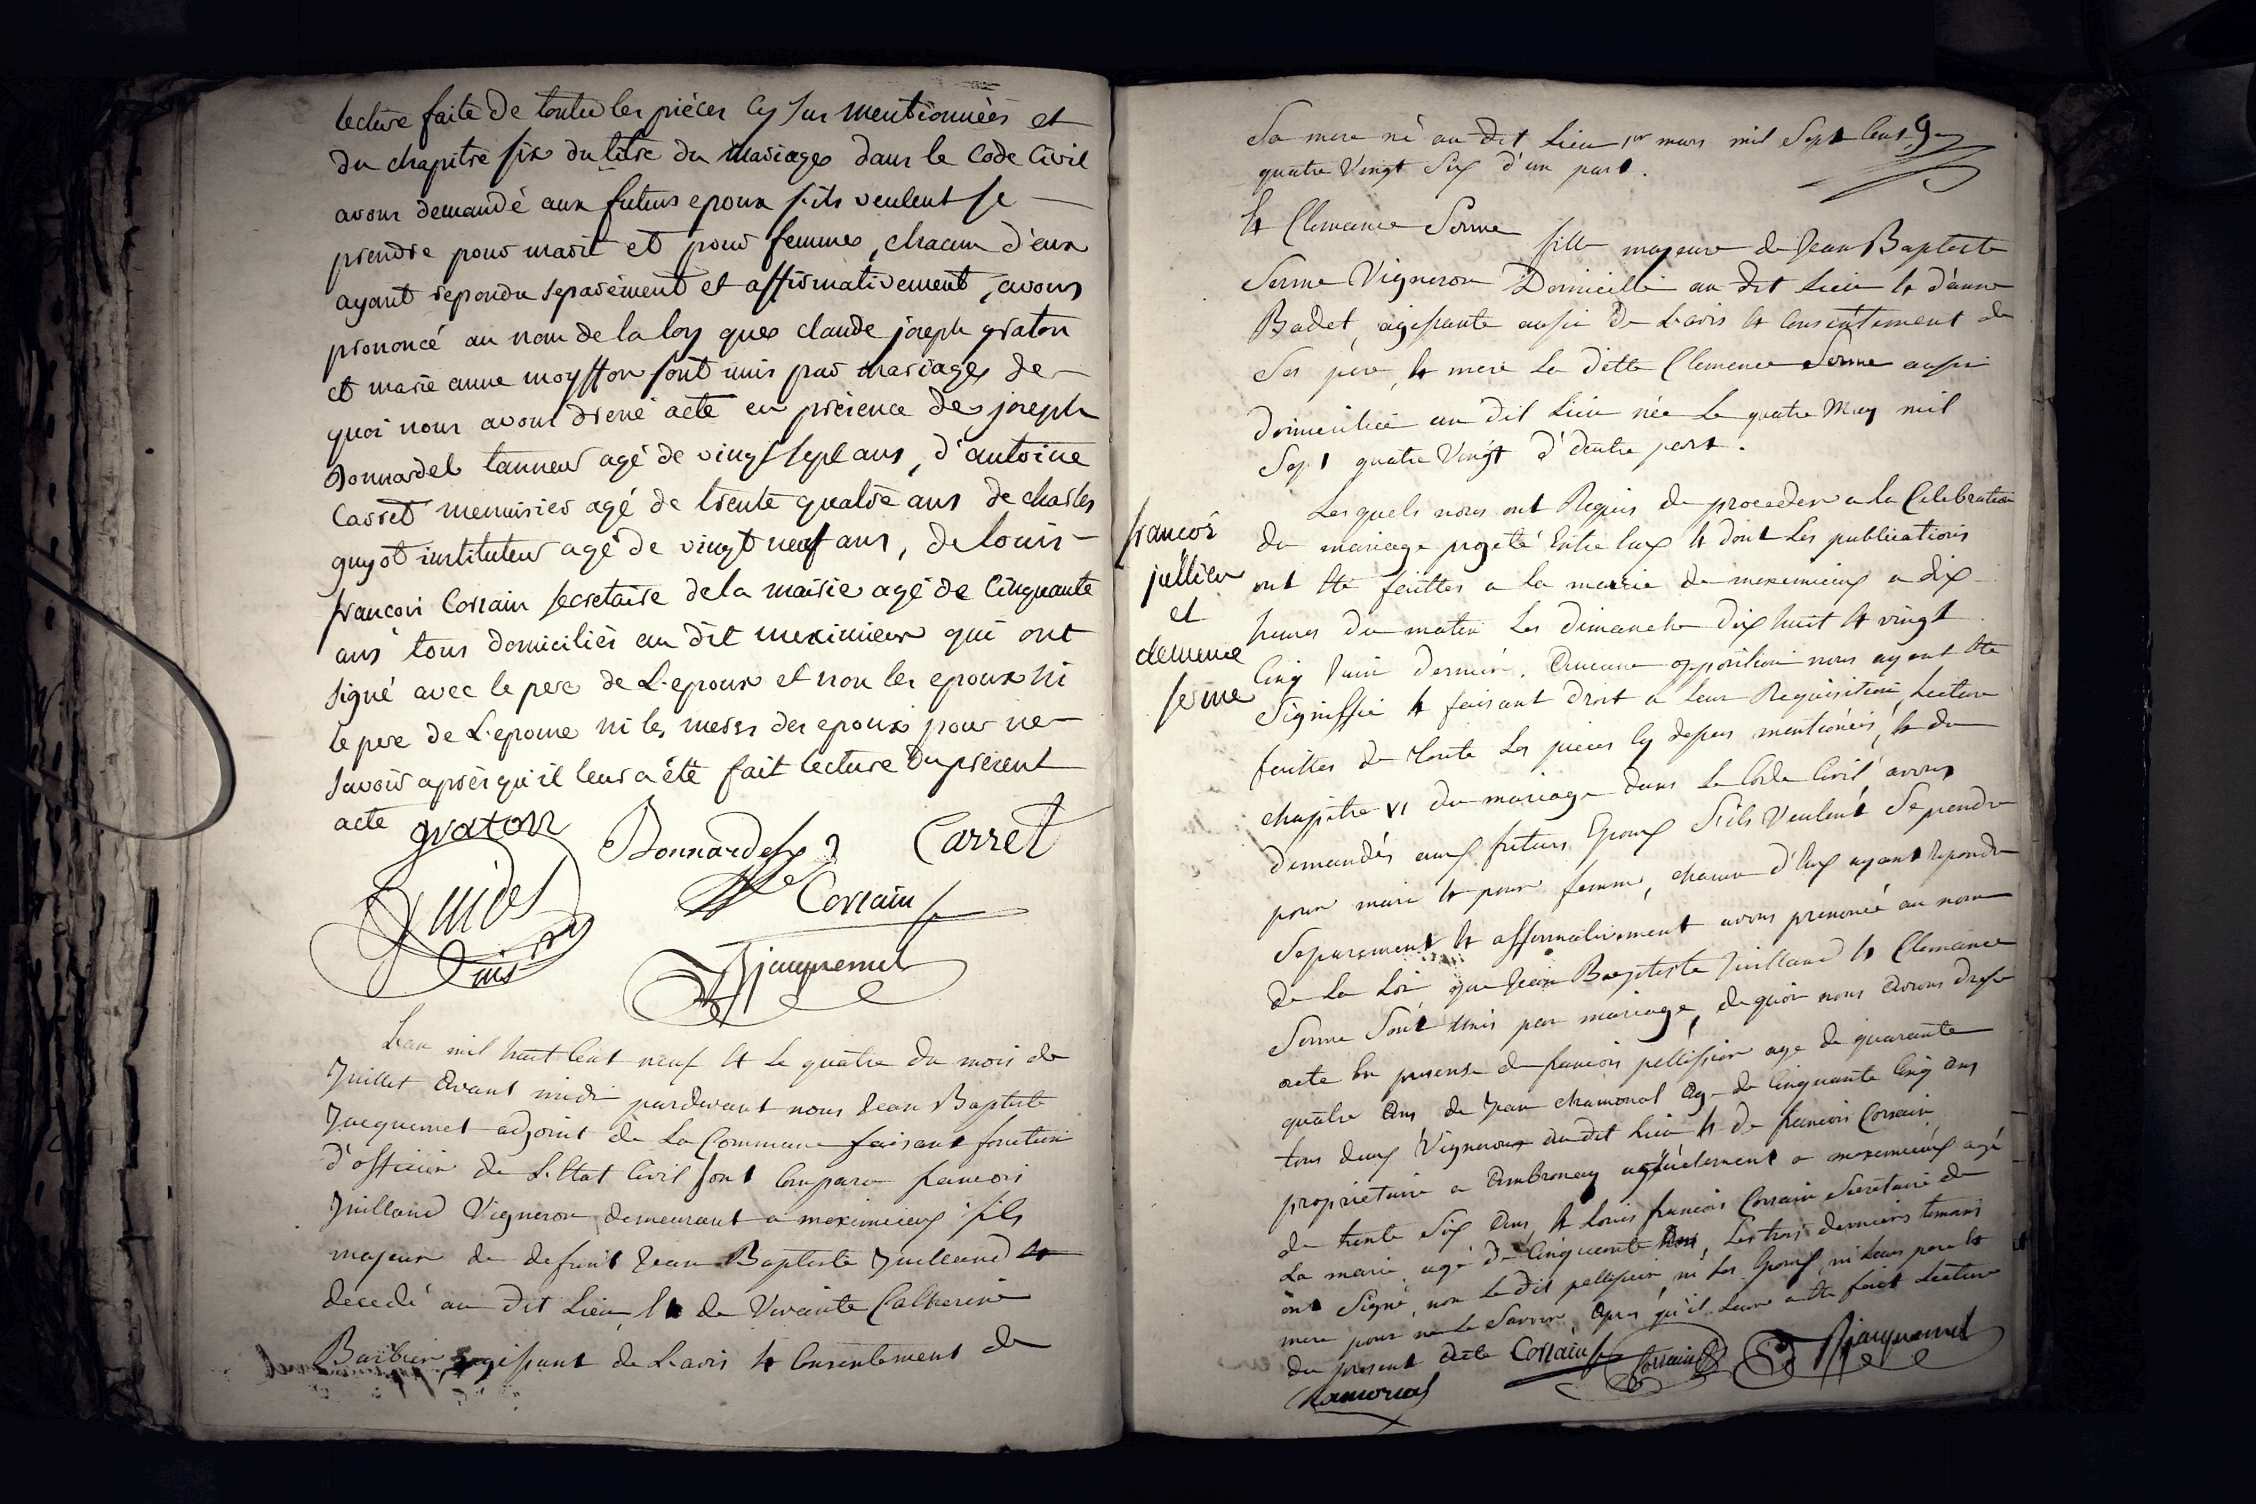 lecture faite de toutes les piéces cy sus mentionnèès et
du chapitre six du titre du mariages dans le Code Civil
avons demandé aux futurs epoux s'ils veulent se
prendre pour marit et pour femmes, chacun d'eux
ayant repondu separément et affirmativement, avons
prononcé au nom de la loy ques claude joseph graton
et marie anne moyffon sont unis par mariages de
quoi nous avons dréné acte en présence des joseph
Bonnardel tanneur agé de vingt sept ans, d'antoine
Carret menuisier agé de trente quatre ans de charles
guyot instituteur agé de vingt neuf ans, de louis
francois Corrain secretaire de la mairie agé de Cinquante
ans tous domiciliès au dit meximieux qui ont
signé avec le pere de L'epoux et non les epoux ni
le pere de L'epouse ni les meres des epoux pour ne
savoir aprèr qu'il leur a été fait lecture du présent
acte graton Bonnardel Carret
Corrain
Jacquemet
Lan mil huit Cent neuf et Le quatre du mois de
Juillet avant midi pardevant nous Jean Baptiste
Jacquemet adjoint de La Commune faisant fonction
d'officier de L'Etat Civil sont Comparu francois
Juilland Vigneron demeurant a meximieux fils
majeur de defunt Jean Baptiste Juilland et
decedé au dit Lieu, et de Vivante Catherine
Barbier, agissant de L'avis et Consentement de
Sa mere né au dit Lieu 1er mars mil Sept Cent 9
quatre Vingt Six d'un part.
Et Clemance Serme fille majeure de Jean Baptiste
Serme Vigneron Domicilié au dit Lieu et d'anne
Badet, agissante aussi de L'avis et Consentement de
Ses père, et mere La ditte Clemence Serme aussi
domiciliée au dit Lieu née Le quatre May mil
Sept quatre Vingt d'autre part.
Lesquels nous ont Requis de proceder a la Celebration
du mariage projeté Entre Eux et dont Les publications
ont été faittes a la mairie de meximieux a dix
heures du matin Les dimanche dix huit et vingt
Cinq Juin dernier. Aucune opposition nous ayant été
Signiffié et faisant droit a leur Requisition, Lecture
faittes de Toute Les pieces Cy dessus mentionéés, et du
chapitre VI du mariage dans Le Code Civil, avons
demandés aux futurs Epoux S'ils Veulent Se prendre
pour mari et pour femme, chacun d'Eux ayant Repondu
Separement et affirmativement avons prenoncé au nom
de La Loi que Jean Baptiste Juilland et Clemance
Serme Sont Unis par mariage, de quoi nous avons dressé
acte En presense de francois pellissier age de quarante
quatre Ans de Jean chamonal Age de Cinquante Cinq ans
tous deux Vignerons du dit Lieu et de francois Corsain
propriétaire a Ambronay actuelement a meximieux agé
de trente Six Ans, et Louis francois Corrain Secretaire de
La mairie, agé de Cinquante Ans, Les trois derniers temoins
ont Signé, non Le dit pellissier, ni Les Epoux, ni Leurs pere et
mere pour ne Le Savoir, Apres qu'il Leur a été fait Lecture
du present Acte Corrain Corsain Jacquemet
chamonal
francoi
jullien
et
clemence
serme